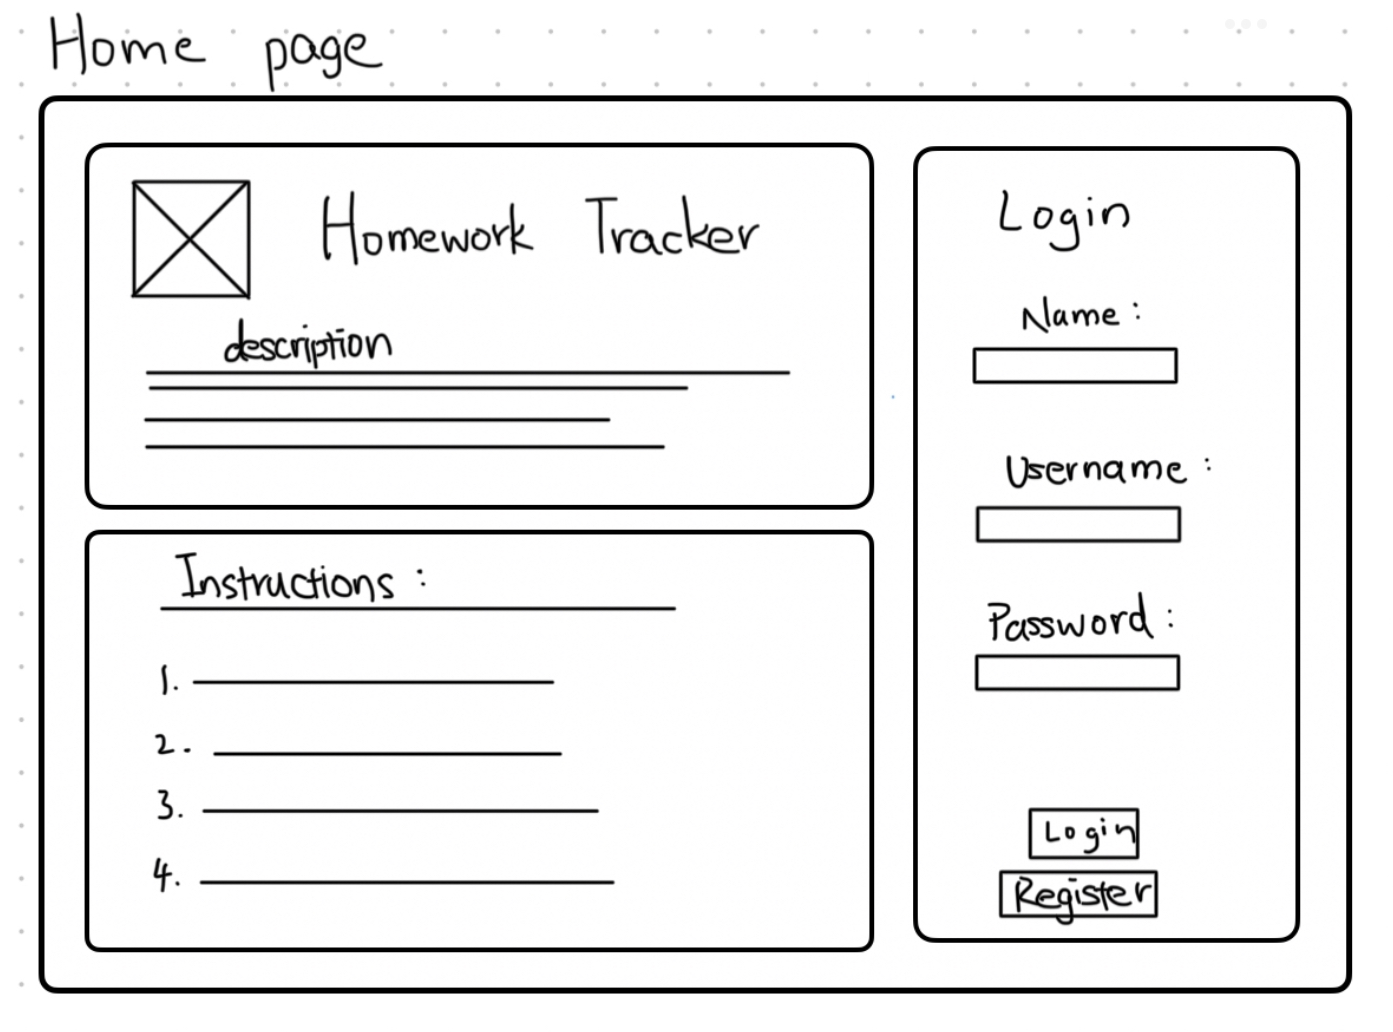 Home page
Homework Tracker
description
Instructions :
1.
2.
3.
4.
Login
Name :
Username :
Password :
Login
Register